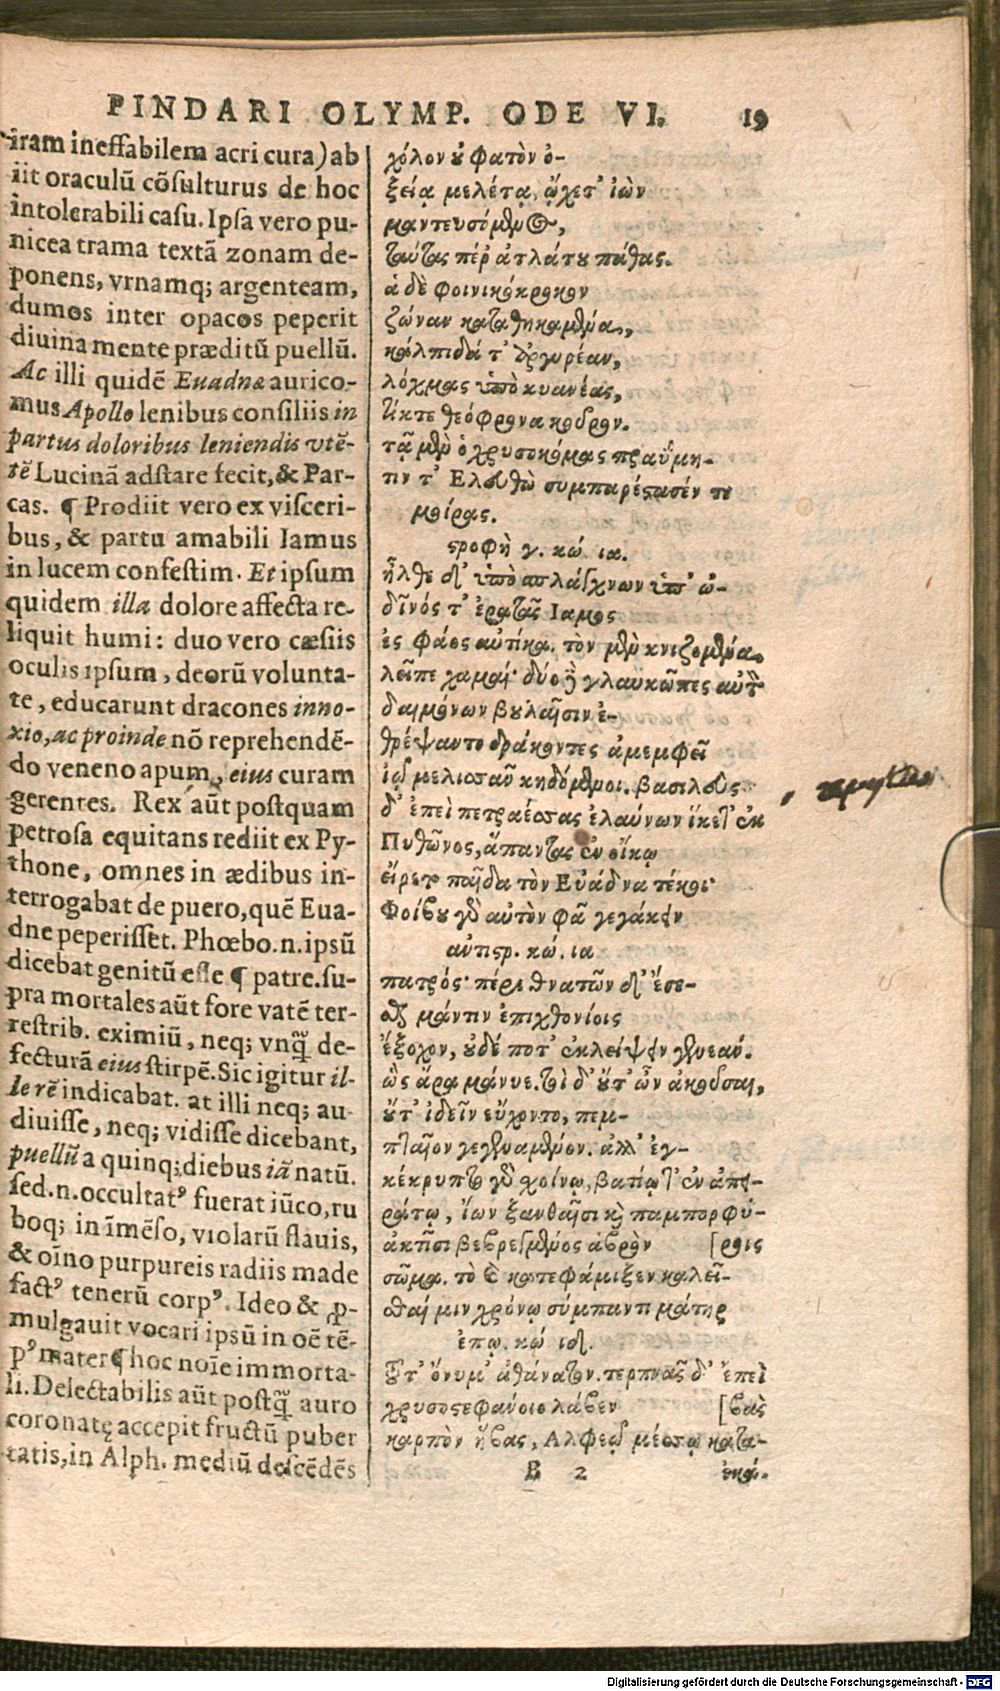 PINDARI OLYMP. ODE VI. 19
iram ineffabilem acri cura) ab
iit oraculũ cõsulturus de hoc
intolerabili casu. Ipsa vero pu-
nicea trama textã zonam de-
ponens, vrnamq; argenteam,
dumos inter opacos peperit
diuina mente præditũ puellũ.
Ac illi quidẽ Euadnæ aurico-
mus Apollo lenibus consiliis in
partus doloribus leniendis vtẽ-
tẽ Lucinã adstare fecit, & Par-
cas. ¶ Prodiit vero ex visceri-
bus, & partu amabili Iamus
in lucem confestim. Et ipsum
quidem illa dolore affecta re-
liquit humi: duo vero cæsiis
oculis ipsum, deorũ volunta-
te, educarunt dracones inno-
xio, ac proinde nõ reprehendẽ-
do veneno apum, eius curam
gerentes. Rex aũt postquam
petrosa equitans rediit ex Py-
thone, omnes in ædibus in-
terrogabat de puero, quẽ Eua-
dne peperisset. Phœbo.n.ipsũ
dicebat genitũ esse ¶ patre.su-
pra mortales aũt fore vatẽ ter-
restrib. eximiũ, neq; vnq̃ de-
fecturã eius stirpẽ. Sic igitur il-
le rẽ indicabat. at illi neq; au-
diuisse, neq; vidisse dicebant,
puellũ a quinq; diebus iã natũ.
sed.n.occultatꝰ fuerat iũco, ru
boq; in ĩmẽso, violarũ flauis,
& oĩno purpureis radiis made
factꝰ tenerũ corpꝰ. Ideo & ꝓ-
mulgauit vocari ipsũ in oẽ tẽ-
pꝰ mater ¶ hoc noĩe immorta-
li. Delectabilis aũt postq̃ auro
coronatę accepit fructũ puber
tatis, in Alph. mediũ descẽdẽs
χόλον ȣ φατὸν ὀ-
ξείᾳ μελέτᾳ, ᾤχετ' ἰὼν
μαντευσόμενος,
ταύτας πέρ ἀτλάτȣ πάθας.
ἁ δὲ φοινικόκροκον
ζώναν καταθηκαμένα,
κάλπιδά τ' ἀργυρέαν,
λόχμας ὑπὸ κυανέας,
τίκτε θεόφρονα κοῦρον.
τᾷ μὲν ὁ χρυσοκόμας πραΰμη-
τιν τ' Ελευθὼ συμπαρέστασέν τε
μοίρας.
στροφὴ γ. κώ. ια.
ἦλθε δ' ὑπὸ σπλάγχνων ὑπ' ὠ-
δῖνός τ' ἐρατᾶς Ιαμος
ἐς φάος αὐτίκα. τὸν μὲν κνιζομένα
λεῖπε χαμαί· δύο δὲ γλαυκῶπες αὐτὸν
δαιμόνων βȣλαῖσιν ἐ-
θρέψαντο δράκοντες ἀμεμφεῖ
ἰῷ μελισσᾶν κηδόμενοι. βασιλεὺς
δ' ἐπεὶ πετραέσσας ἐλαύνων ἵκετ' ἐκ
Πυθῶνος, ἅπαντας ἐν οἴκῳ
εἴρετο παῖδα τὸν Εὐάδνα τέκοι·
Φοίβȣ γὰρ αὐτὸν φᾶ γεγάκειν
αὐτιστρ. κώ. ια
πατρός· πέρι θνατῶν δ' ἔσε-
σθαι μάντιν ἐπιχθονίοις
ἔξοχον, ȣδέ ποτ' ἐκλείψειν γενεάν.
ὣς ἄρα μάνυε. τοὶ δ' ȣ̓́τ' ὦν ἀκοῦσαι,
ȣ̓́τ' ἰδεῖν εὔχοντο, πεμ-
πταῖον γεγενημένον. ἀλλ' ἐγ-
κέκρυπτο γὰρ χοίνῳ, βατίᾳ τ' ἐν ἀπει-
ράτῳ, ἴων ξανθαῖσι καὶ παμπορφύ-
ἀκτῖσι βεβρεγμένος ἁβρὸν [ροις
σῶμα. τὸ καὶ κατεφάμιξεν καλεῖ-
σθαί μιν χρόνῳ σύμπαντι μάτηρ
ἐπῳ. κώ ιδ.
τȣ͂τ' ὄνυμ' ἀθάνατον. τερπνᾶς δ' ἐπεὶ
χρυσοστεφάνοιο λάβεν [βὰς
καρπὸν ἥβας, Αλφεῷ μέσσῳ κατα-
B 2 ἐκά-
Digitalisierung gefördert durch die Deutsche Forschungsgemeinschaft - DFG